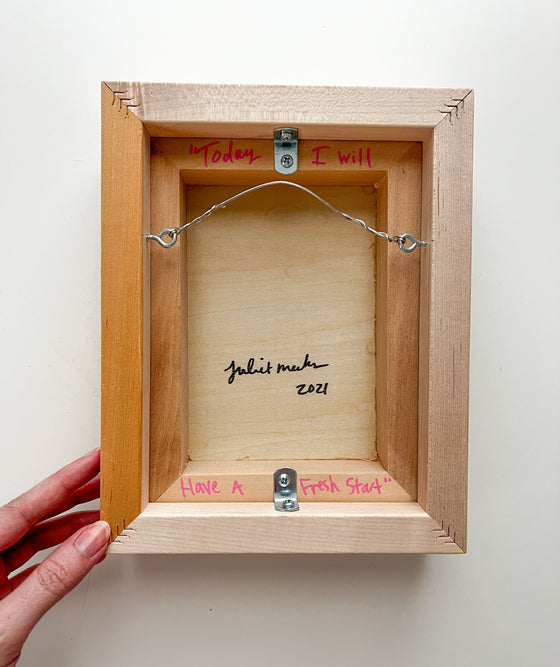 "Today I will
Juliet Meeks
2021
Have A Fresh Start"